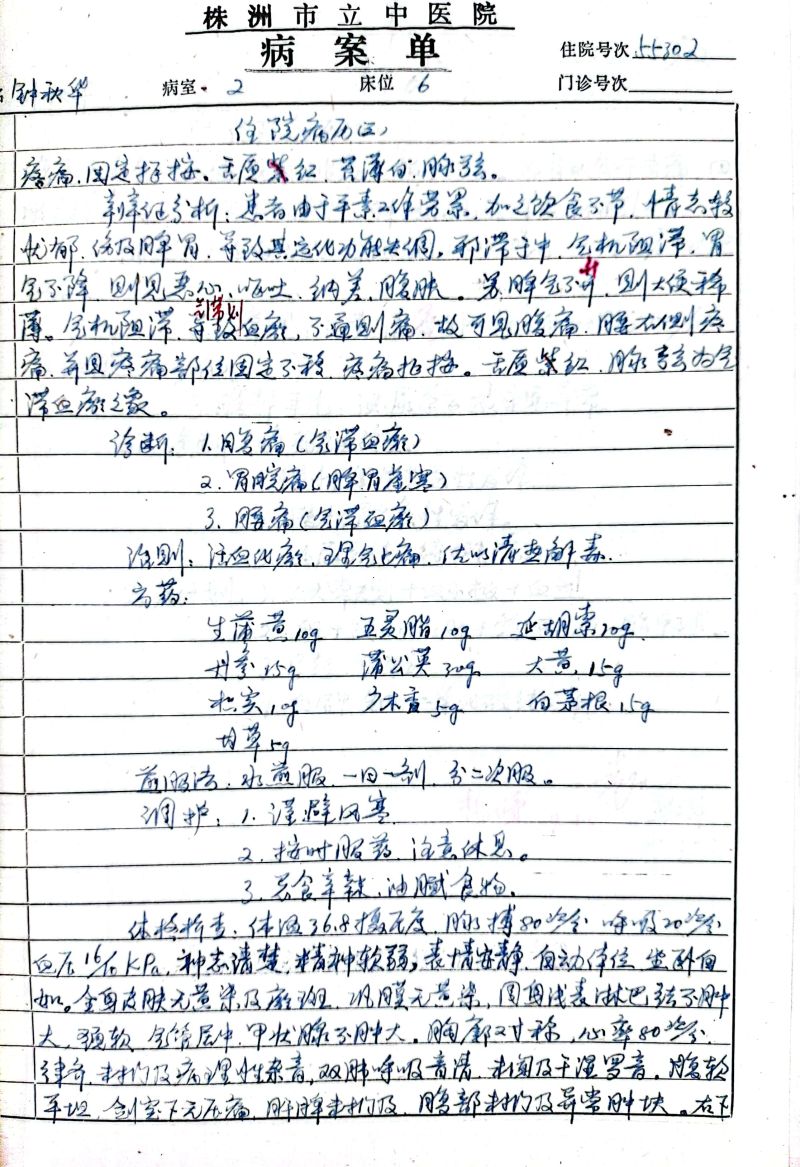 株洲市立中医院
病案单
住院号次 55302
钟秋华 病室 2 床位 6 门诊号次
住院病历(二)
疼痛,固定拒按。舌质紫红 苔薄白,脉弦。
辨证分析:患者由于平素工作劳累,加之饮食不节,情志较
忧郁,伤及脾胃,导致其运化功能失调,邪滞于中,气机阻滞,胃
气不降,则见恶心、呕吐,纳差,腹胀。若脾气不升,则大便稀
薄。气机阻滞,气滞则血瘀,不通则痛,故可见腹痛,腰右侧疼
痛,并且疼痛部位固定不移,疼痛拒按。舌质紫红,脉弦为气
滞血瘀之象。
诊断:1.腹痛(气滞血瘀)
2.胃脘痛(脾胃虚寒)
3.腰痛(气滞血瘀)
治则:活血化瘀,理气止痛,佐以清热解毒.
方药:
生蒲黄10g 五灵脂10g 延胡索20g
丹参15g 蒲公英30g 大黄15g
枳实10g 广木香5g 白茅根15g
甘草5g
煎服法:水煎服,一日一剂,分二次服。
调护:1.谨避风寒
2.按时服药,注意休息。
3.忌食辛辣,油腻食物.
体格检查:体温36.8摄氏度,脉搏80次/分 呼吸20次/分
血压16/10KPa,神志清楚,精神软弱,表情安静,自动体位,坐卧自
如。全身皮肤无黄染及瘀斑,巩膜无黄染,周身浅表淋巴结不肿
大,颈软,气管居中,甲状腺不肿大。胸廓对称,心率80次/分
律齐,未闻及病理性杂音,双肺呼吸音清,未闻及干湿罗音。腹软
平坦,剑突下无压痛,肝脾未扪及,腹部未扪及异常肿块。右下